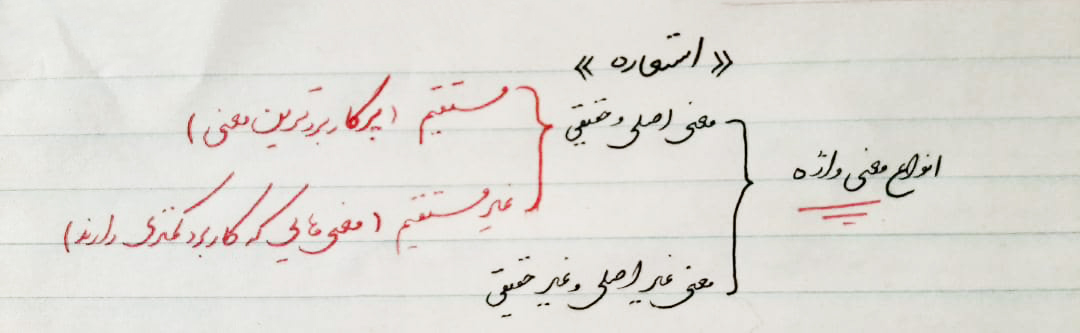 « استعاره »
انواع معنی واژه
معنی اصلی و حقیقی
مستقیم (پرکاربردترین معنی)
غیرمستقیم (معنی‌هایی که کاربرد کمتری دارند)
معنی غیر اصلی و غیر حقیقی